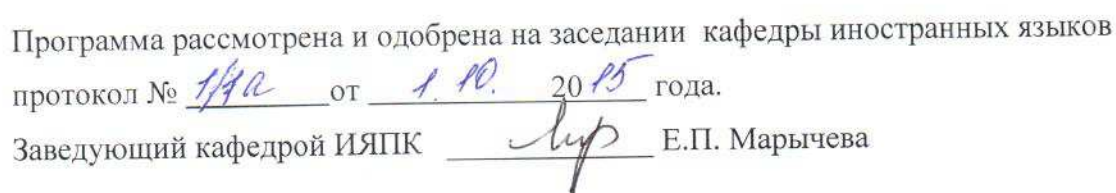 Программа рассмотрена и одобрена на заседании кафедры иностранных языков
протокол № 1/1а от 1.10. 2015 года.
Заведующий кафедрой ИЯПК Е.П. Марычева